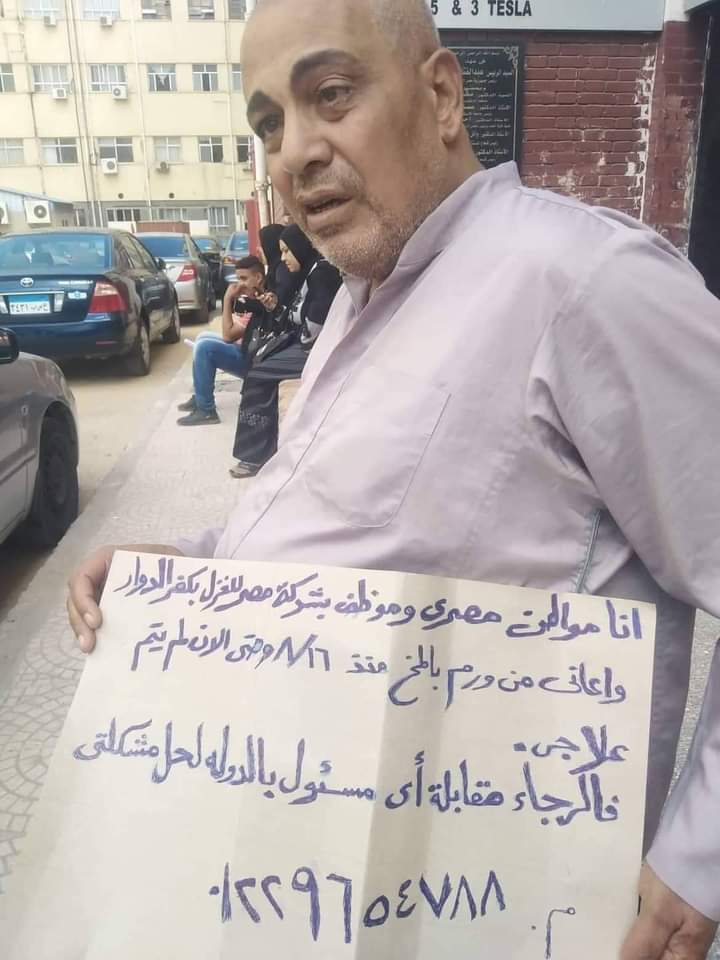 5 & 3 TESLA
انا مواطن مصرى وموظف بشركة مصر للغزل بكفر الدوار
واعانى من ورم بالمخ منذ ٨/١٦ وحتى الان لم يتم
علاجى.
فالرجاء مقابلة أى مسئول بالدوله لحل مشكلتى
م. ٠١٢٢٩٦٥٤٧٨٨